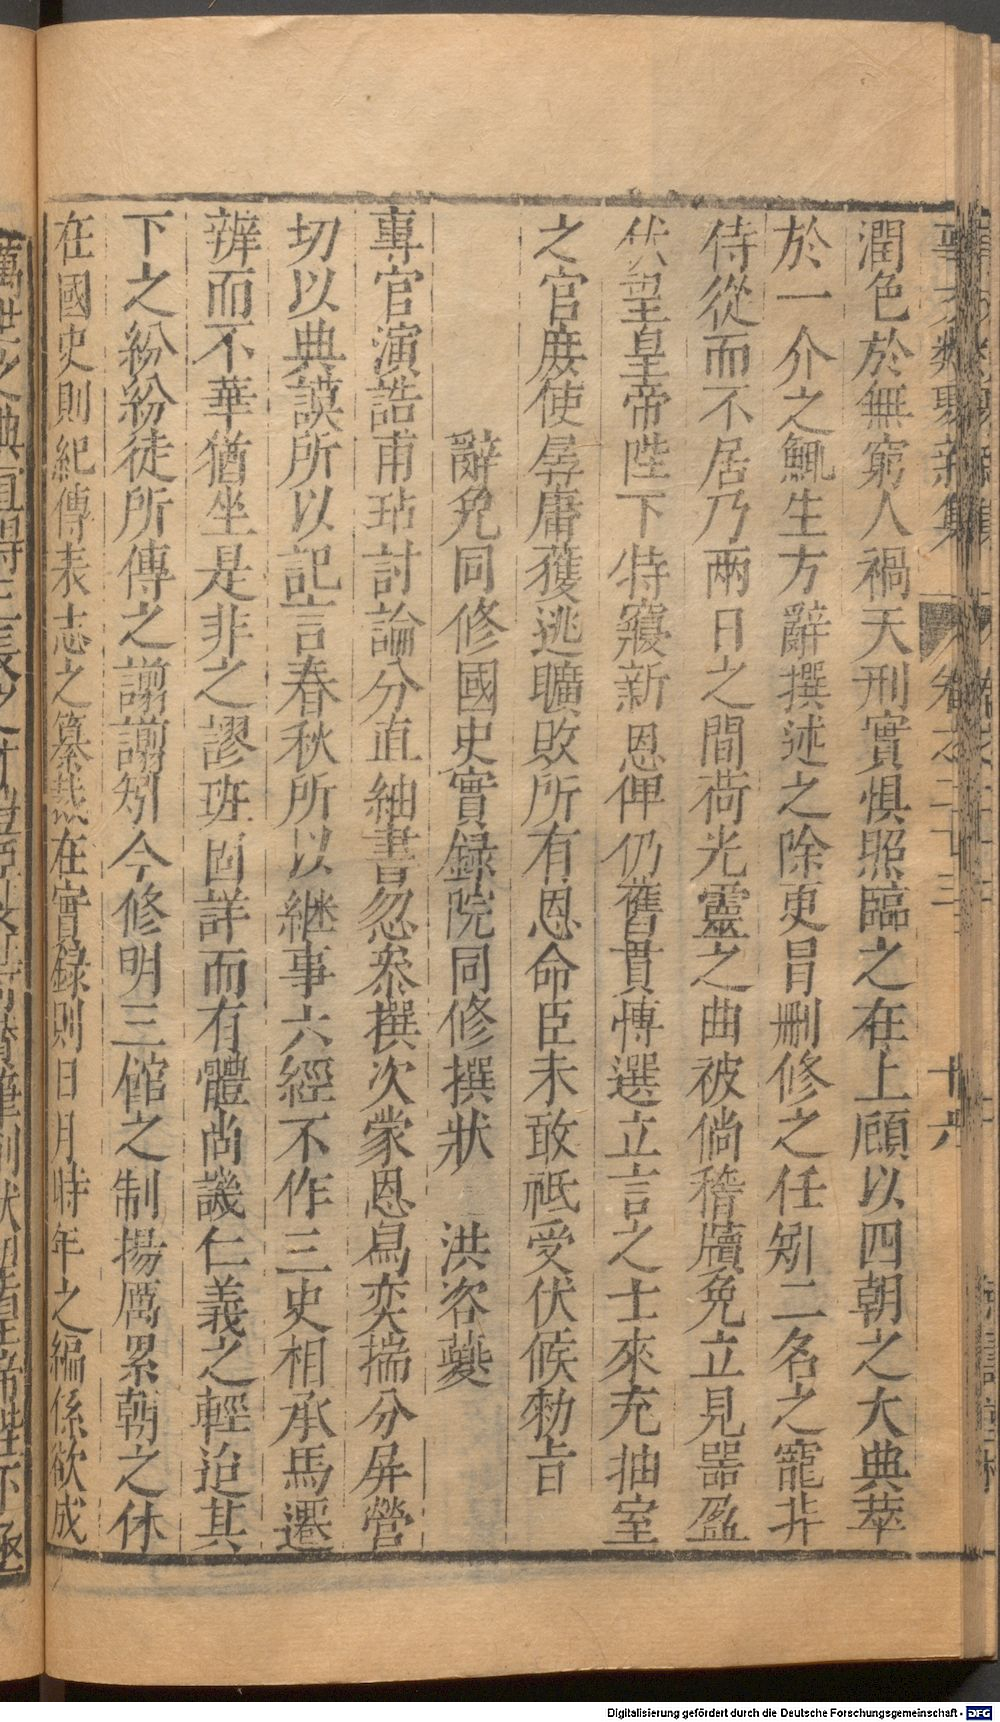 潤色於無窮人禍天刑實惧照臨之在上顧以四朝之大典萃
於一介之鯫生方辭撰述之除更冒刪修之任矧二名之寵非
侍從而不居乃兩日之間荷光靈之曲被倘稽牘免立見噐盈
伏望皇帝陛下特寢新恩俾仍舊貫慱選立言之士來充抽室
之官庻使孱庸獲逃曠敗所有恩命臣未敢祗受伏候勑旨
辭免同修國史實錄院同修撰狀 洪咨夔
專官演誥甫玷討論分直紬書忽叅撰次蒙恩舄奕揣分屏營
切以典謨所以記言春秋所以継事六經不作三史相承馬遷
辨而不華猶坐是非之謬班固詳而有體尚譏仁義之輕迨其
下之紛紛徒所傳之謭謭矧今修明三館之制揚厲累朝之休
在國史則紀傳表志之纂裁在實錄則日月時年之編係欲成
十六
Digitalisierung gefördert durch die Deutsche Forschungsgemeinschaft - DFG